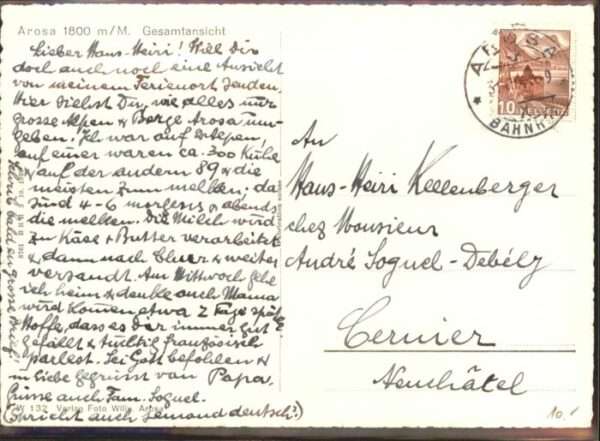 Arosa 1800 m/M. Gesamtansicht
Lieber Hans-Heiri! Will Dir
doch auch noch eine Aussicht
von meinem Ferienort senden.
Hier siehst Du, wie alles nur
grosse Alpen & Berge Arosa um-
geben. Ich war auf 2 Alpen,
auf einer waren ca. 300 Kühe
& auf der andern 89 & die
meisten zum melken. da
sind 4-6 morgens & abends
die melken. Die Milch wird
zu Käse & Butter verarbeitet
& dann nach Chur & weiter
versandt. Am Mittwoch gehe
ich heim & denke auch Mama
wird kommen etwa 2 Tage später
Hoffe, dass es Dir immer gut
gefällt & tüchtig französisch
parlest. Sei Gott befohlen &
in Liebe gegrüsst von Papa.
Grüsse auch Fam. Soguel.
(Spricht auch Jemand deutsch?)
W 132 Verlag Foto Willy, Arosa
AROSA
BAHNHOF
10 HELVETIA
An
Hans-Heiri Kellenberger
chez Monsieur
André Soguel-Debély
Cernier
Neuchâtel
10.-